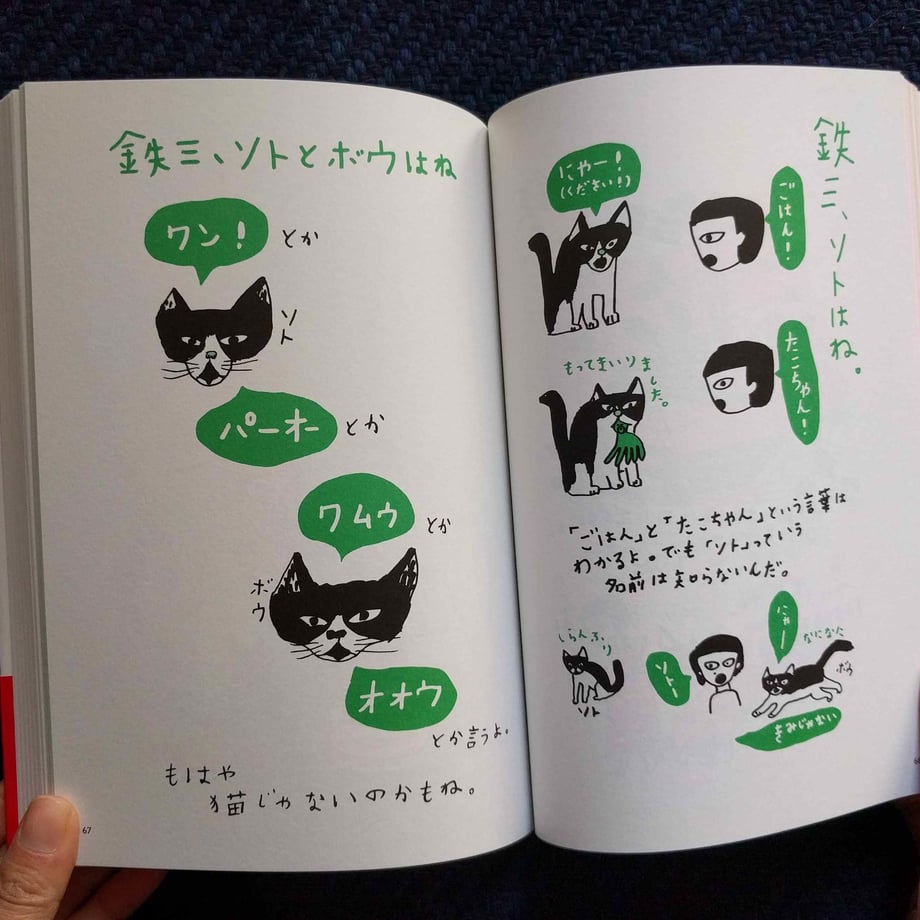 鉄三、ソトとボウはね
ワン!
とか
ソト
パーオー
とか
ワムウ
とか
ボウ
オオウ
とか言うよ。
もはや
猫じゃないのかもね。
67
鉄三、ソトはね。
ごはん!
にゃー!
(ください!)
たこちゃん!
もってきいりました。
「ごはん」と「たこちゃん」という言葉は
わかるよ。でも「ソト」っていう
名前は知らないんだ。
しらんふり
ソト
ソトー
にゃー
なになに
ボウ
きみじゃない